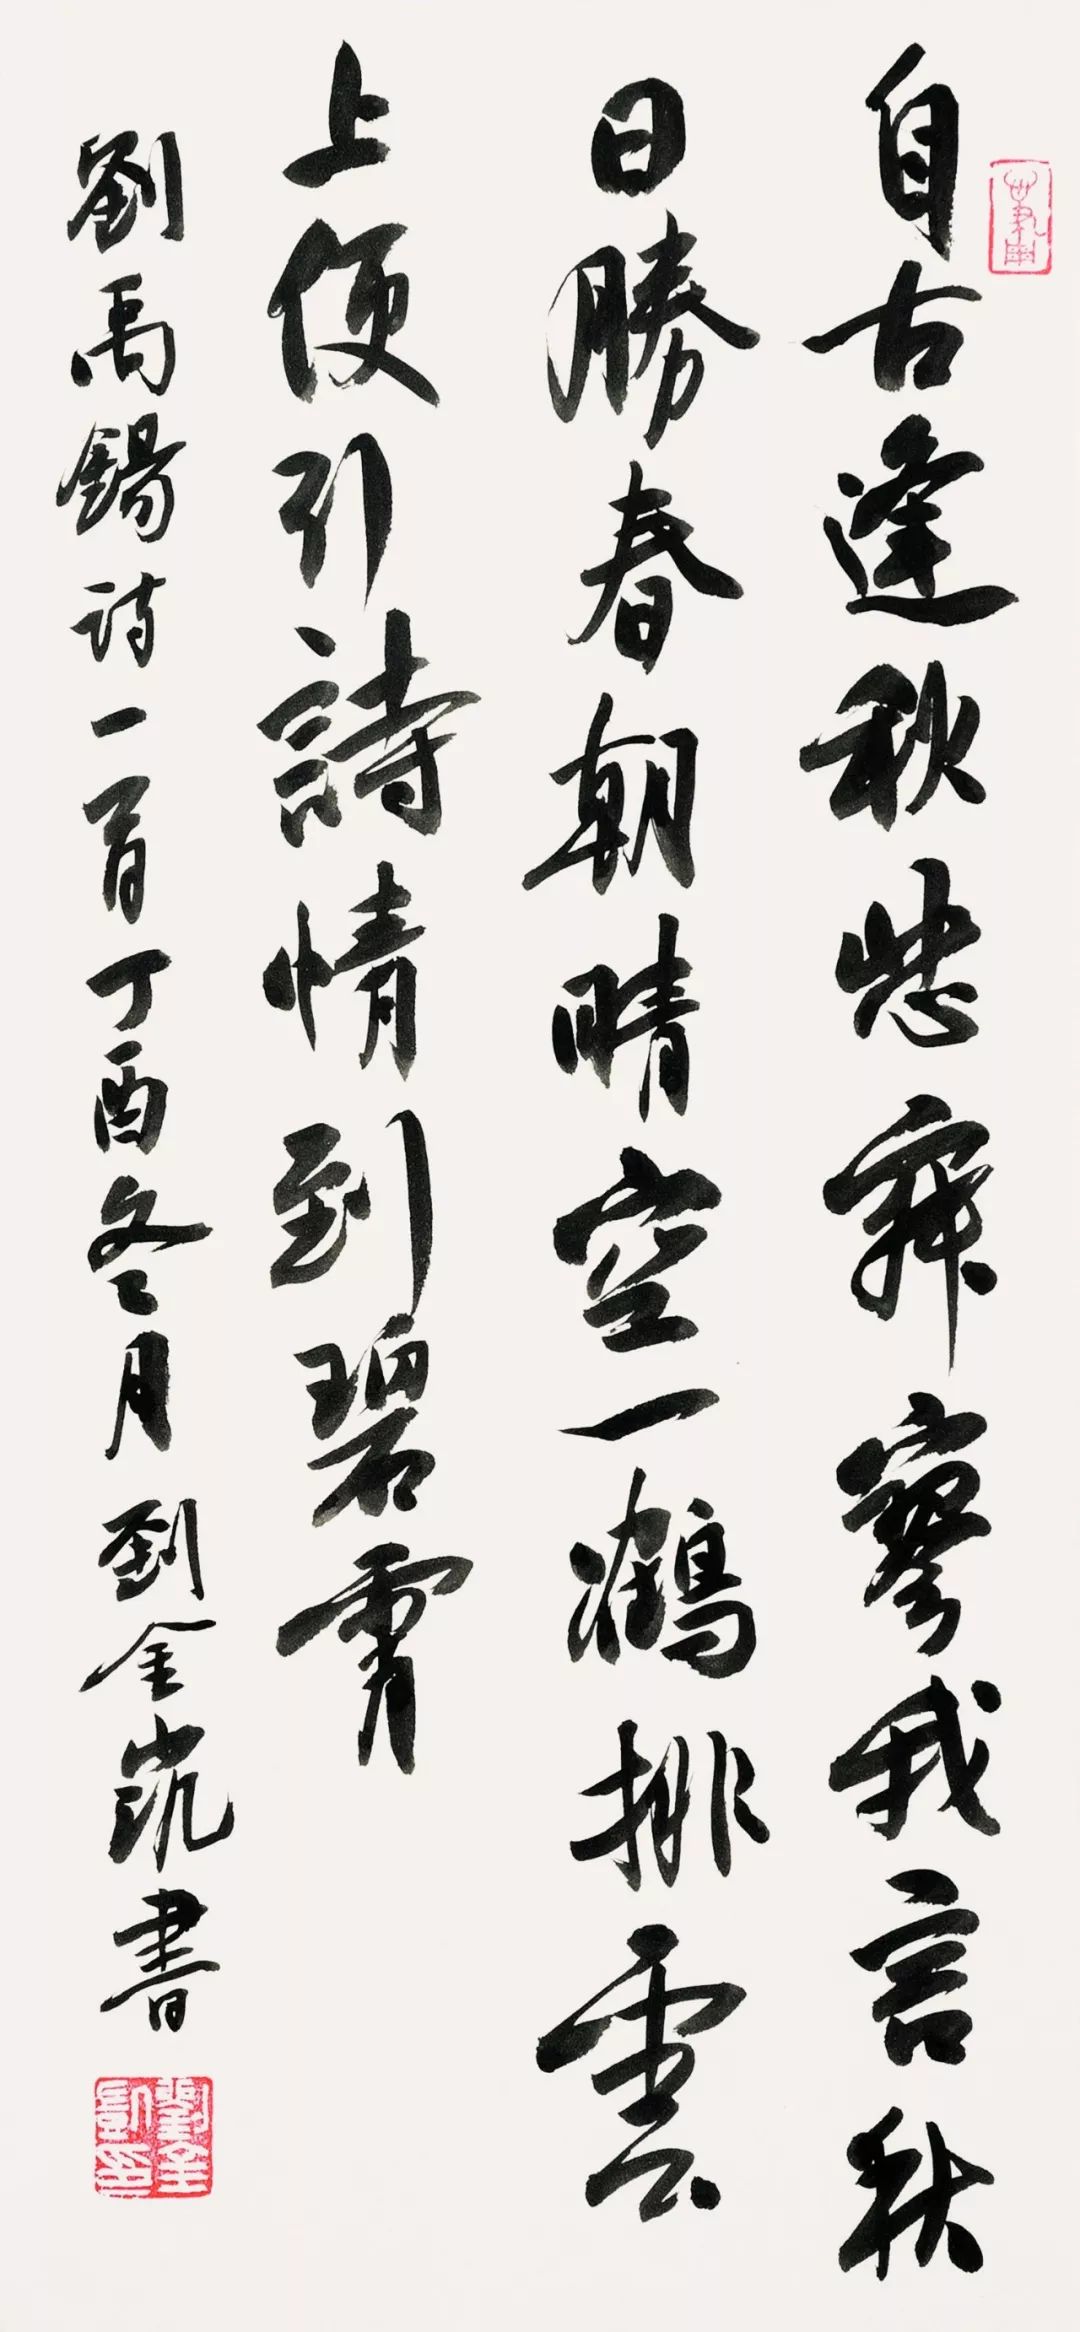 自古逢秋悲寂寥我言秋
日勝春朝晴空一鶴排雲
上便引詩情到碧霄
劉禹錫诗一首丁酉冬月劉金凱書
劉金凱印